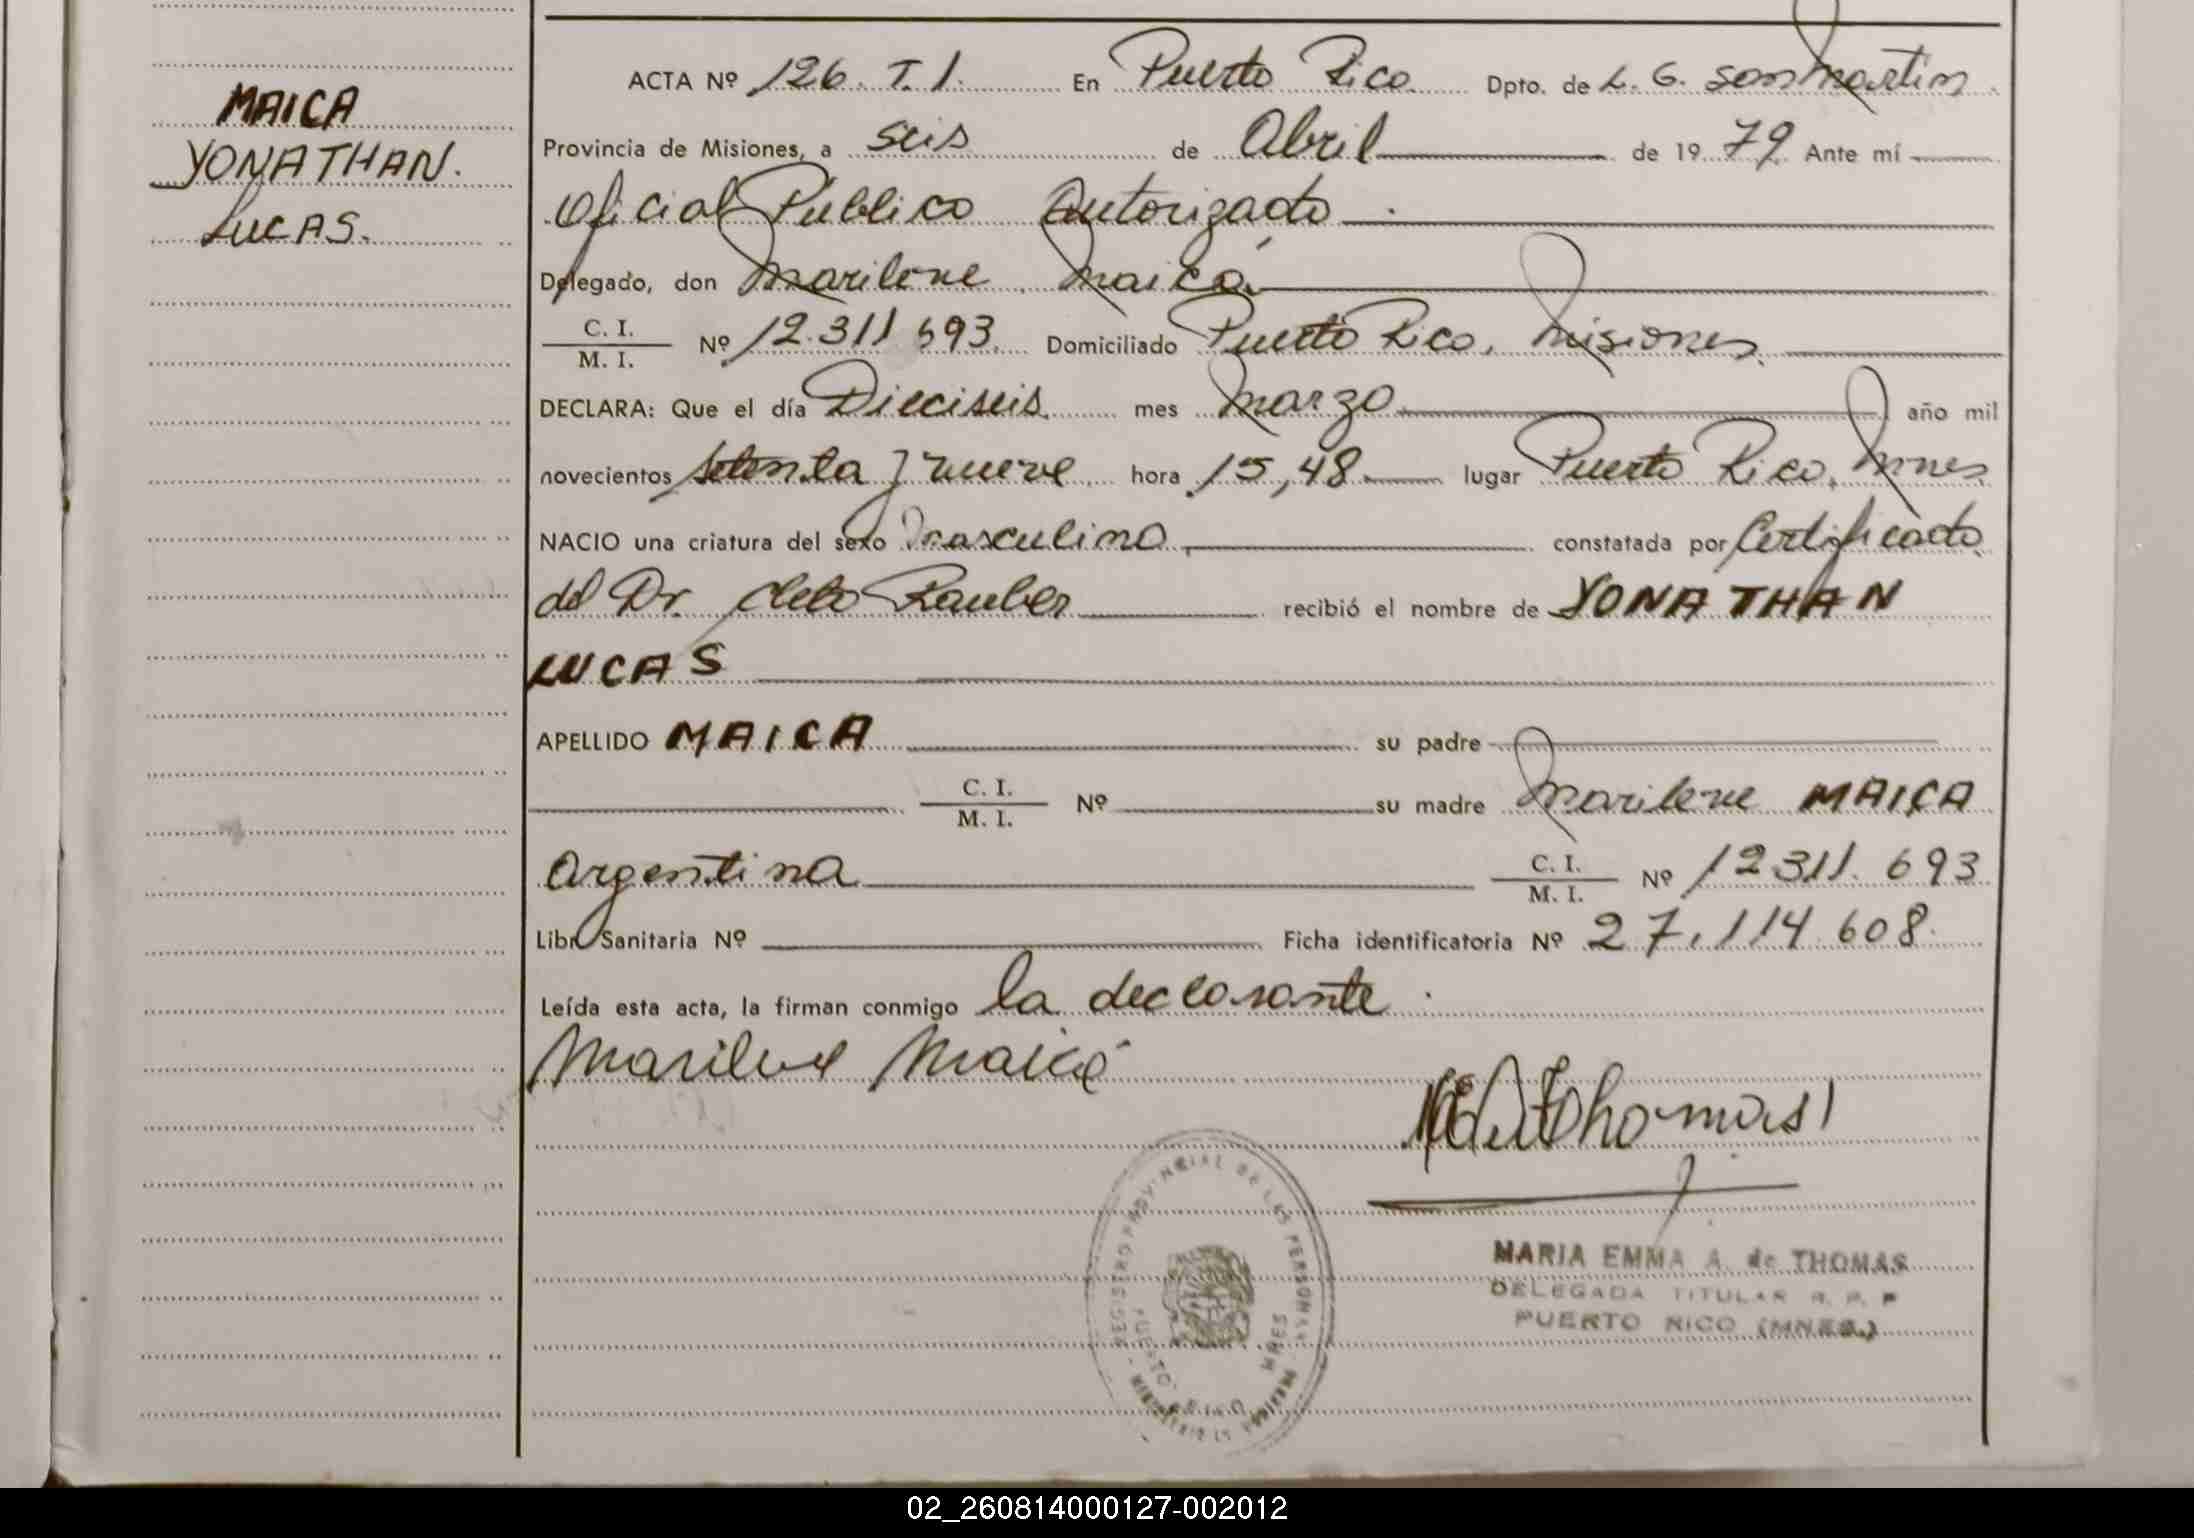 MAICA
YONATHAN.
LUCAS.
ACTA Nº 126. T. 1. En Puerto Rico. Dpto. de L. G. San Martin.
Provincia de Misiones, a seis de Abril de 1979. Ante mí
Oficial Público Autorizado.
Delegado, don Marilene Maicá
C. I. / M. I. Nº 12.311 693. Domiciliado Puerto Rico, Misiones.
DECLARA: Que el día Dieciseis mes Marzo año mil
novecientos setenta y nueve hora 15,48 lugar Puerto Rico, Mnes
NACIO una criatura del sexo Masculino, constatada por Certificado
del Dr. Cleto Rauber recibió el nombre de YONATHAN
LUCAS
APELLIDO MAICA su padre
C. I. / M. I. Nº su madre Marilene MAICA
Argentina C. I. / M. I. Nº 12311.693
Libr Sanitaria Nº Ficha identificatoria Nº 27.114.608
Leída esta acta, la firman conmigo la declarante.
Marilene Maicá
Thomas
REGISTRO PROVINCIAL DE LAS PERSONAS
PUERTO RICO MNES
MARIA EMMA A. de THOMAS
DELEGADA TITULAR R. P. P
PUERTO RICO (MNES.)
02_260814000127-002012